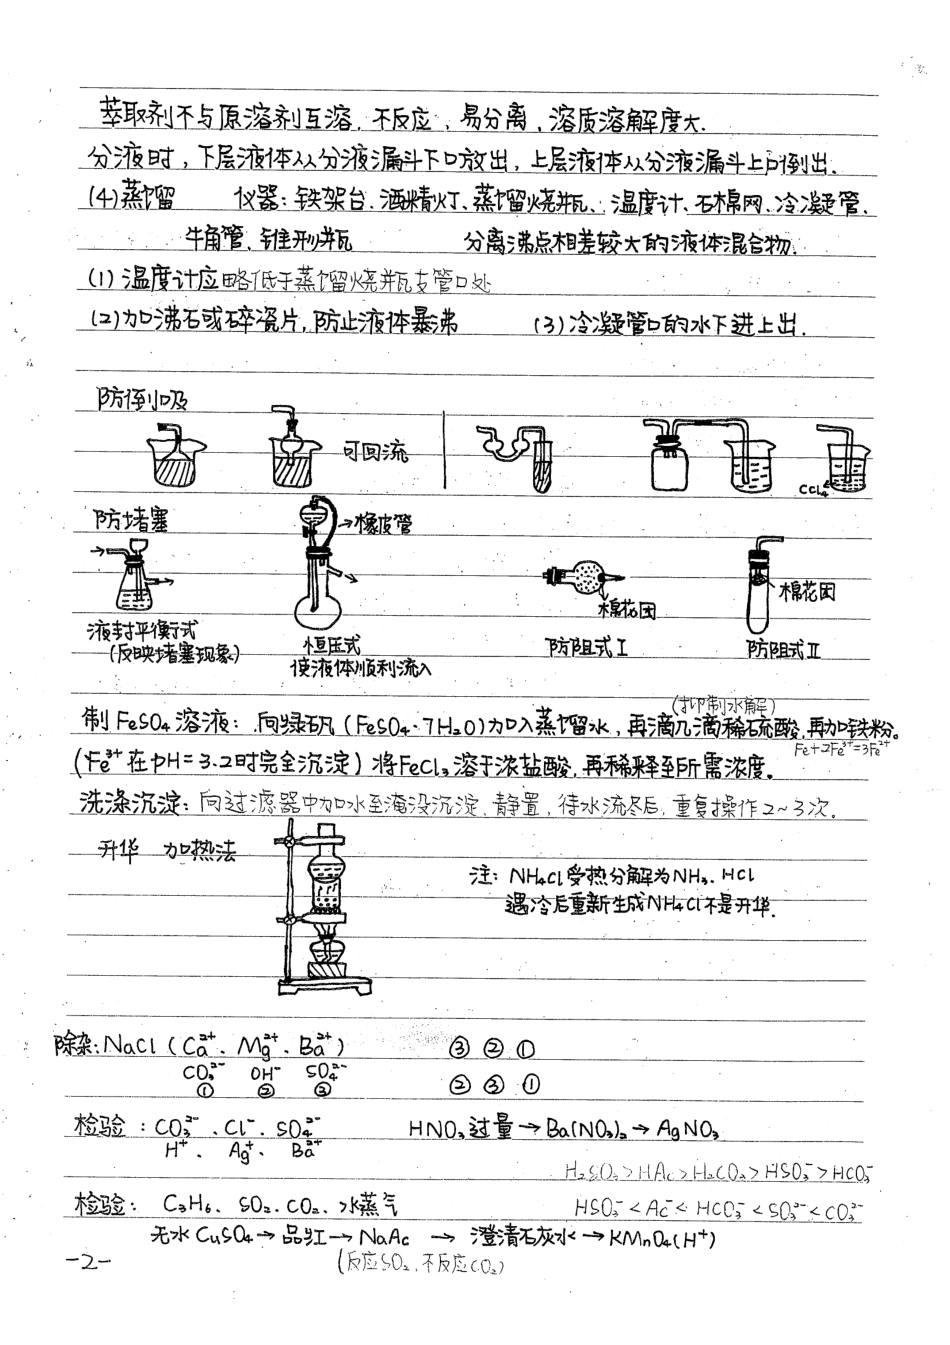 萃取剂不与原溶剂互溶、不反应、易分离、溶质溶解度大.
分液时，下层液体从分液漏斗下口放出，上层液体从分液漏斗上口倒出.
(4)蒸馏 仪器：铁架台、酒精灯、蒸馏烧瓶、温度计、石棉网、冷凝管、
牛角管、锥形瓶 分离沸点相差较大的液体混合物.
(1)温度计应略低于蒸馏烧瓶支管口处
(2)加沸石或碎瓷片，防止液体暴沸 (3)冷凝管口的水下进上出.
防倒吸
可回流
CCl₄
防堵塞
→橡皮管
棉花团
棉花团
液封平衡式
(反映堵塞现象)
恒压式
使液体顺利流入
防阻式Ⅰ
防阻式Ⅱ
(抑制水解)
制FeSO₄溶液：向绿矾(FeSO₄·7H₂O)加入蒸馏水，再滴几滴稀硫酸，再加铁粉。
Fe+2Fe³⁺=3Fe²⁺
(Fe³⁺在pH=3.2时完全沉淀) 将FeCl₃溶于浓盐酸，再稀释至所需浓度。
洗涤沉淀：向过滤器中加水至淹没沉淀、静置，待水流尽后，重复操作2~3次。
升华 加热法
注：NH₄Cl受热分解为NH₃、HCl
遇冷后重新生成NH₄Cl不是升华.
除杂：NaCl (Ca²⁺、Mg²⁺、Ba²⁺) ③②①
CO₃²⁻ OH⁻ SO₄²⁻
① ② ③ ②③①
检验：CO₃²⁻、Cl⁻、SO₄²⁻ HNO₃过量→Ba(NO₃)₂→AgNO₃
H⁺、Ag⁺、Ba²⁺
H₂SO₃>HAc>H₂CO₃>HSO₃⁻>HCO₃⁻
检验：C₃H₆、SO₂、CO₂、水蒸气 HSO₃⁻<Ac⁻<HCO₃⁻<SO₃²⁻<CO₃²⁻
无水CuSO₄→品红→NaAc→澄清石灰水→KMnO₄(H⁺)
(反应SO₂,不反应CO₂)
-2-